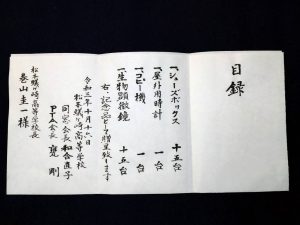 目録
一、シューズボックス 十五台
一、屋外用時計 一台
一、コピー機 一台
一、生物顕微鏡 十五台
右、記念品として贈呈致します
令和三年十月十六日
松本蟻ケ崎高等学校
同窓会長 和合直子
PTA会長 甕 剛
松本蟻ケ崎高等学校長
巻山圭一 様